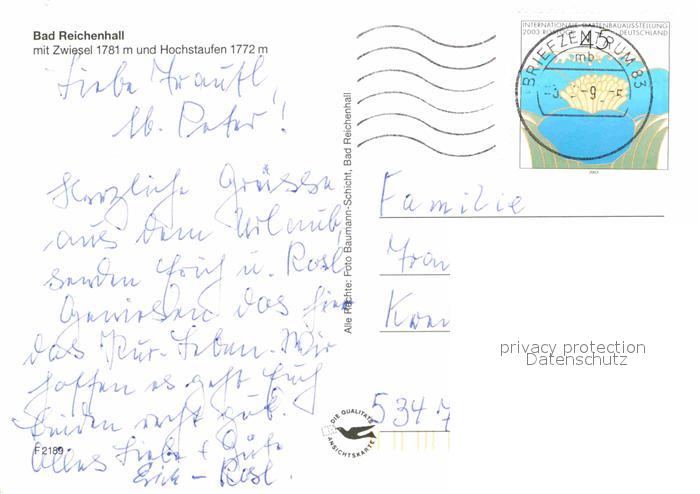 Bad Reichenhall
mit Zwiesel 1781 m und Hochstaufen 1772 m
Liebe Trautl,
lb. Peter!
Herzliche Grüsse
aus dem Urlaub
senden Euch u. Rosl
Geniessen das hier
das Kur-Leben. Wir
hoffen es geht Euch
beiden recht gut.
Alles Liebe + Gute
Erich - Rosl.
F 2189
Alle Rechte: Foto Baumann-Schicht, Bad Reichenhall
DIE QUALITÄTS
ANSICHTSKARTE
INTERNATIONALE GARTENBAUAUSSTELLUNG
2003 ROSTOCK DEUTSCHLAND
45
BRIEFZENTRUM 83
mb
2003
Familie
5347
privacy protection
Datenschutz